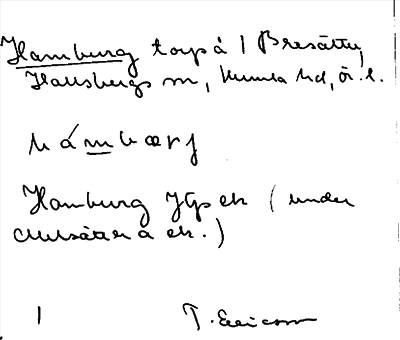 Hamburg torp å 1 Bresätter,
Hallsbergs sn, Kumla hd, Ör. l.
hámbærj
Hamburg Jfgs ek (under
Clubsätter å ek.)
1 T. Ericsson